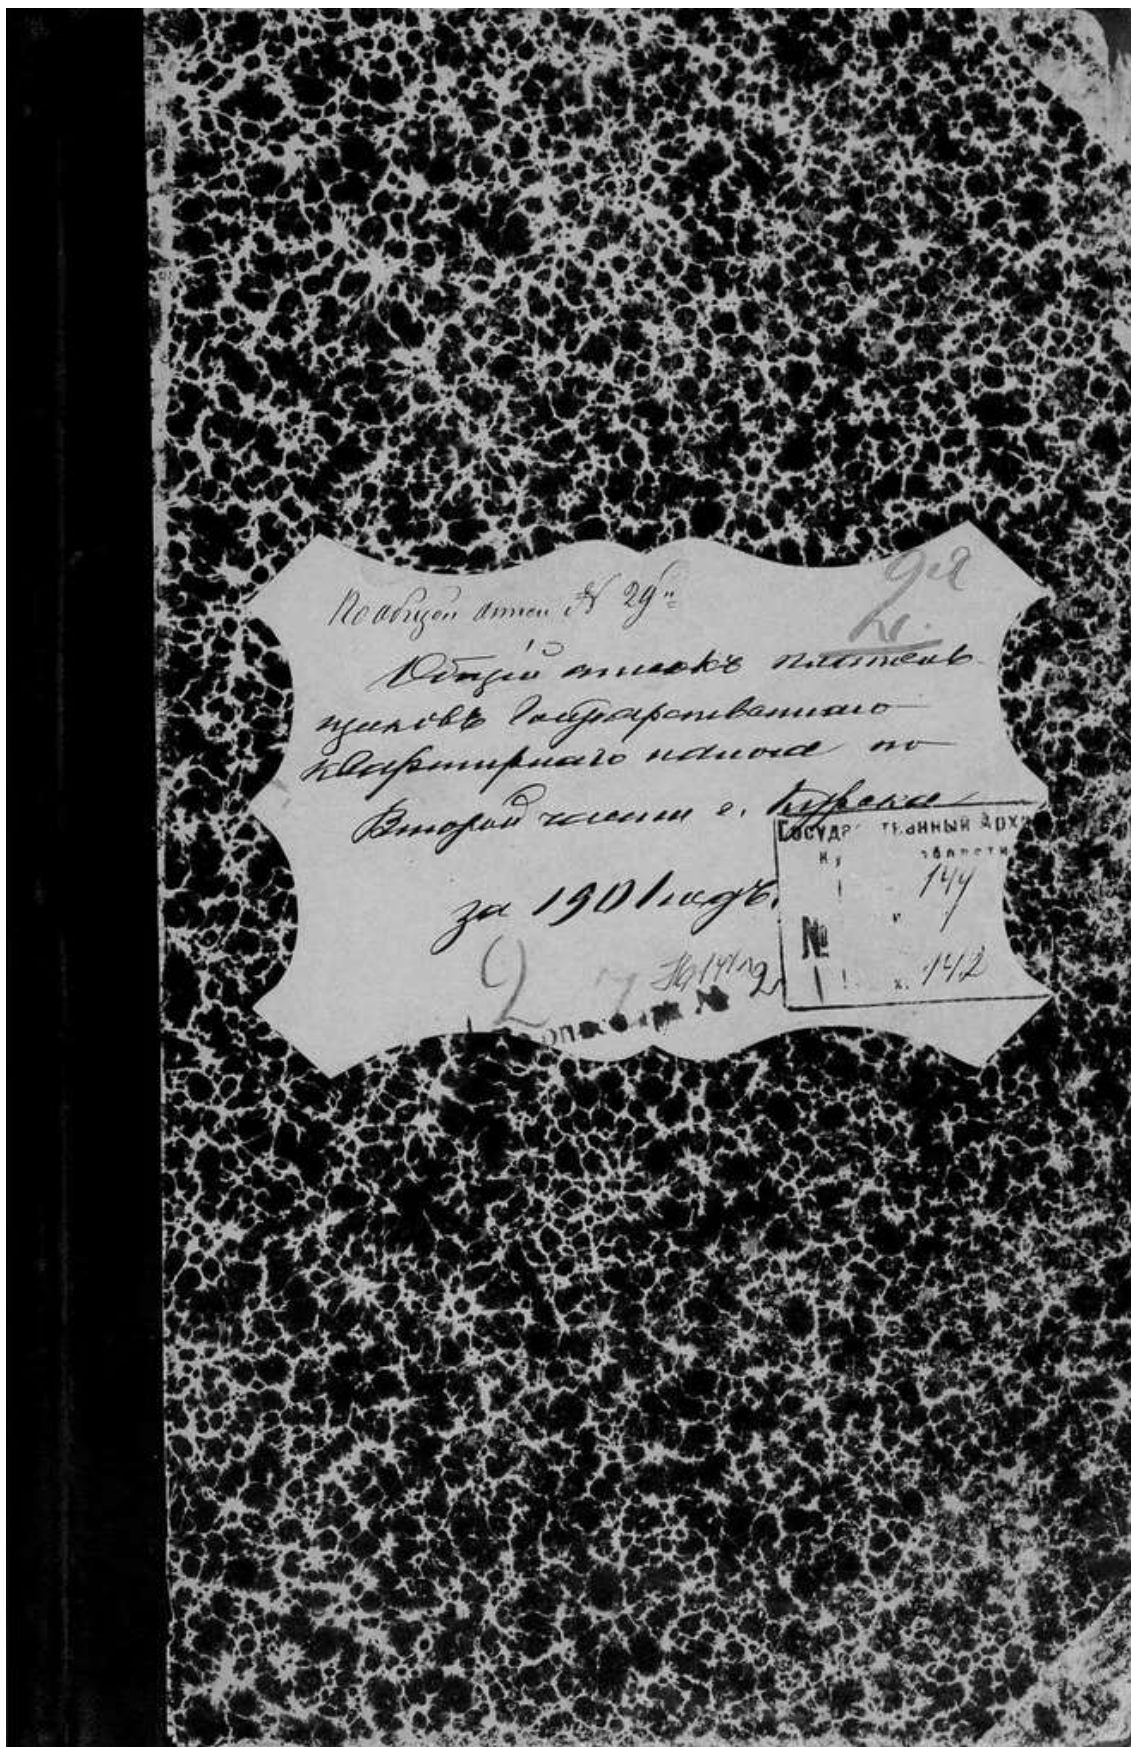 По общей описи № 29й
2я
2.
Общій списокъ платель
щиковъ Государственнаго
квартирнаго налога по
Второй части г. Курска
за 1901 годъ.
Государственный Арх
области
144
№
х. 142
2